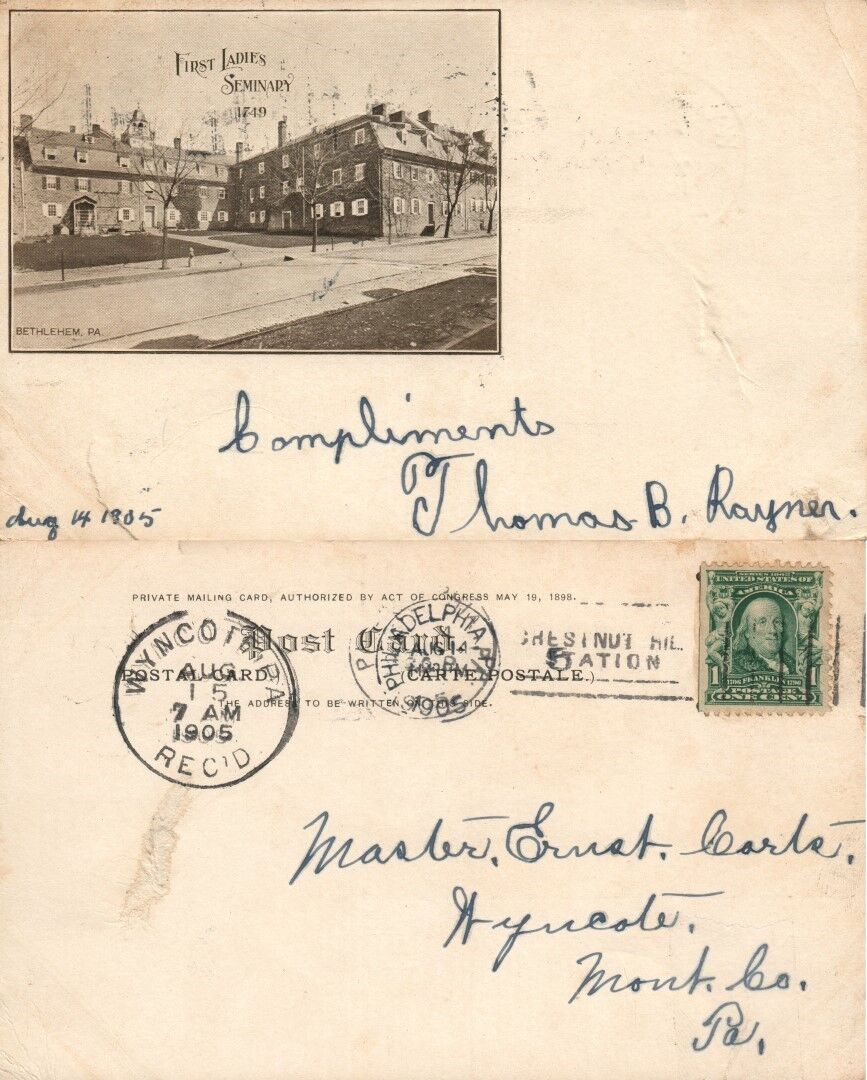 FIRST LADIES
SEMINARY
1749
BETHLEHEM, PA.
Compliments
Thomas B. Rayner.
Aug 14 1905
PRIVATE MAILING CARD, AUTHORIZED BY ACT OF CONGRESS MAY 19, 1898.
Post Card.
(POSTAL CARD. CARTE POSTALE.)
THE ADDRESS TO BE WRITTEN ON THIS SIDE.
WYNCOTE, PA
AUG
15
7 AM
1905
REC'D
PHILADELPHIA, PA.
AUG 14
1905
CHESTNUT HILL
STATION
SERIES 1902
UNITED STATES OF
AMERICA
1706 FRANKLIN 1790
1 POSTAGE 1
ONE CENT
Master. Ernst. Corts.
Wyncote.
Mont. Co.
Pa.